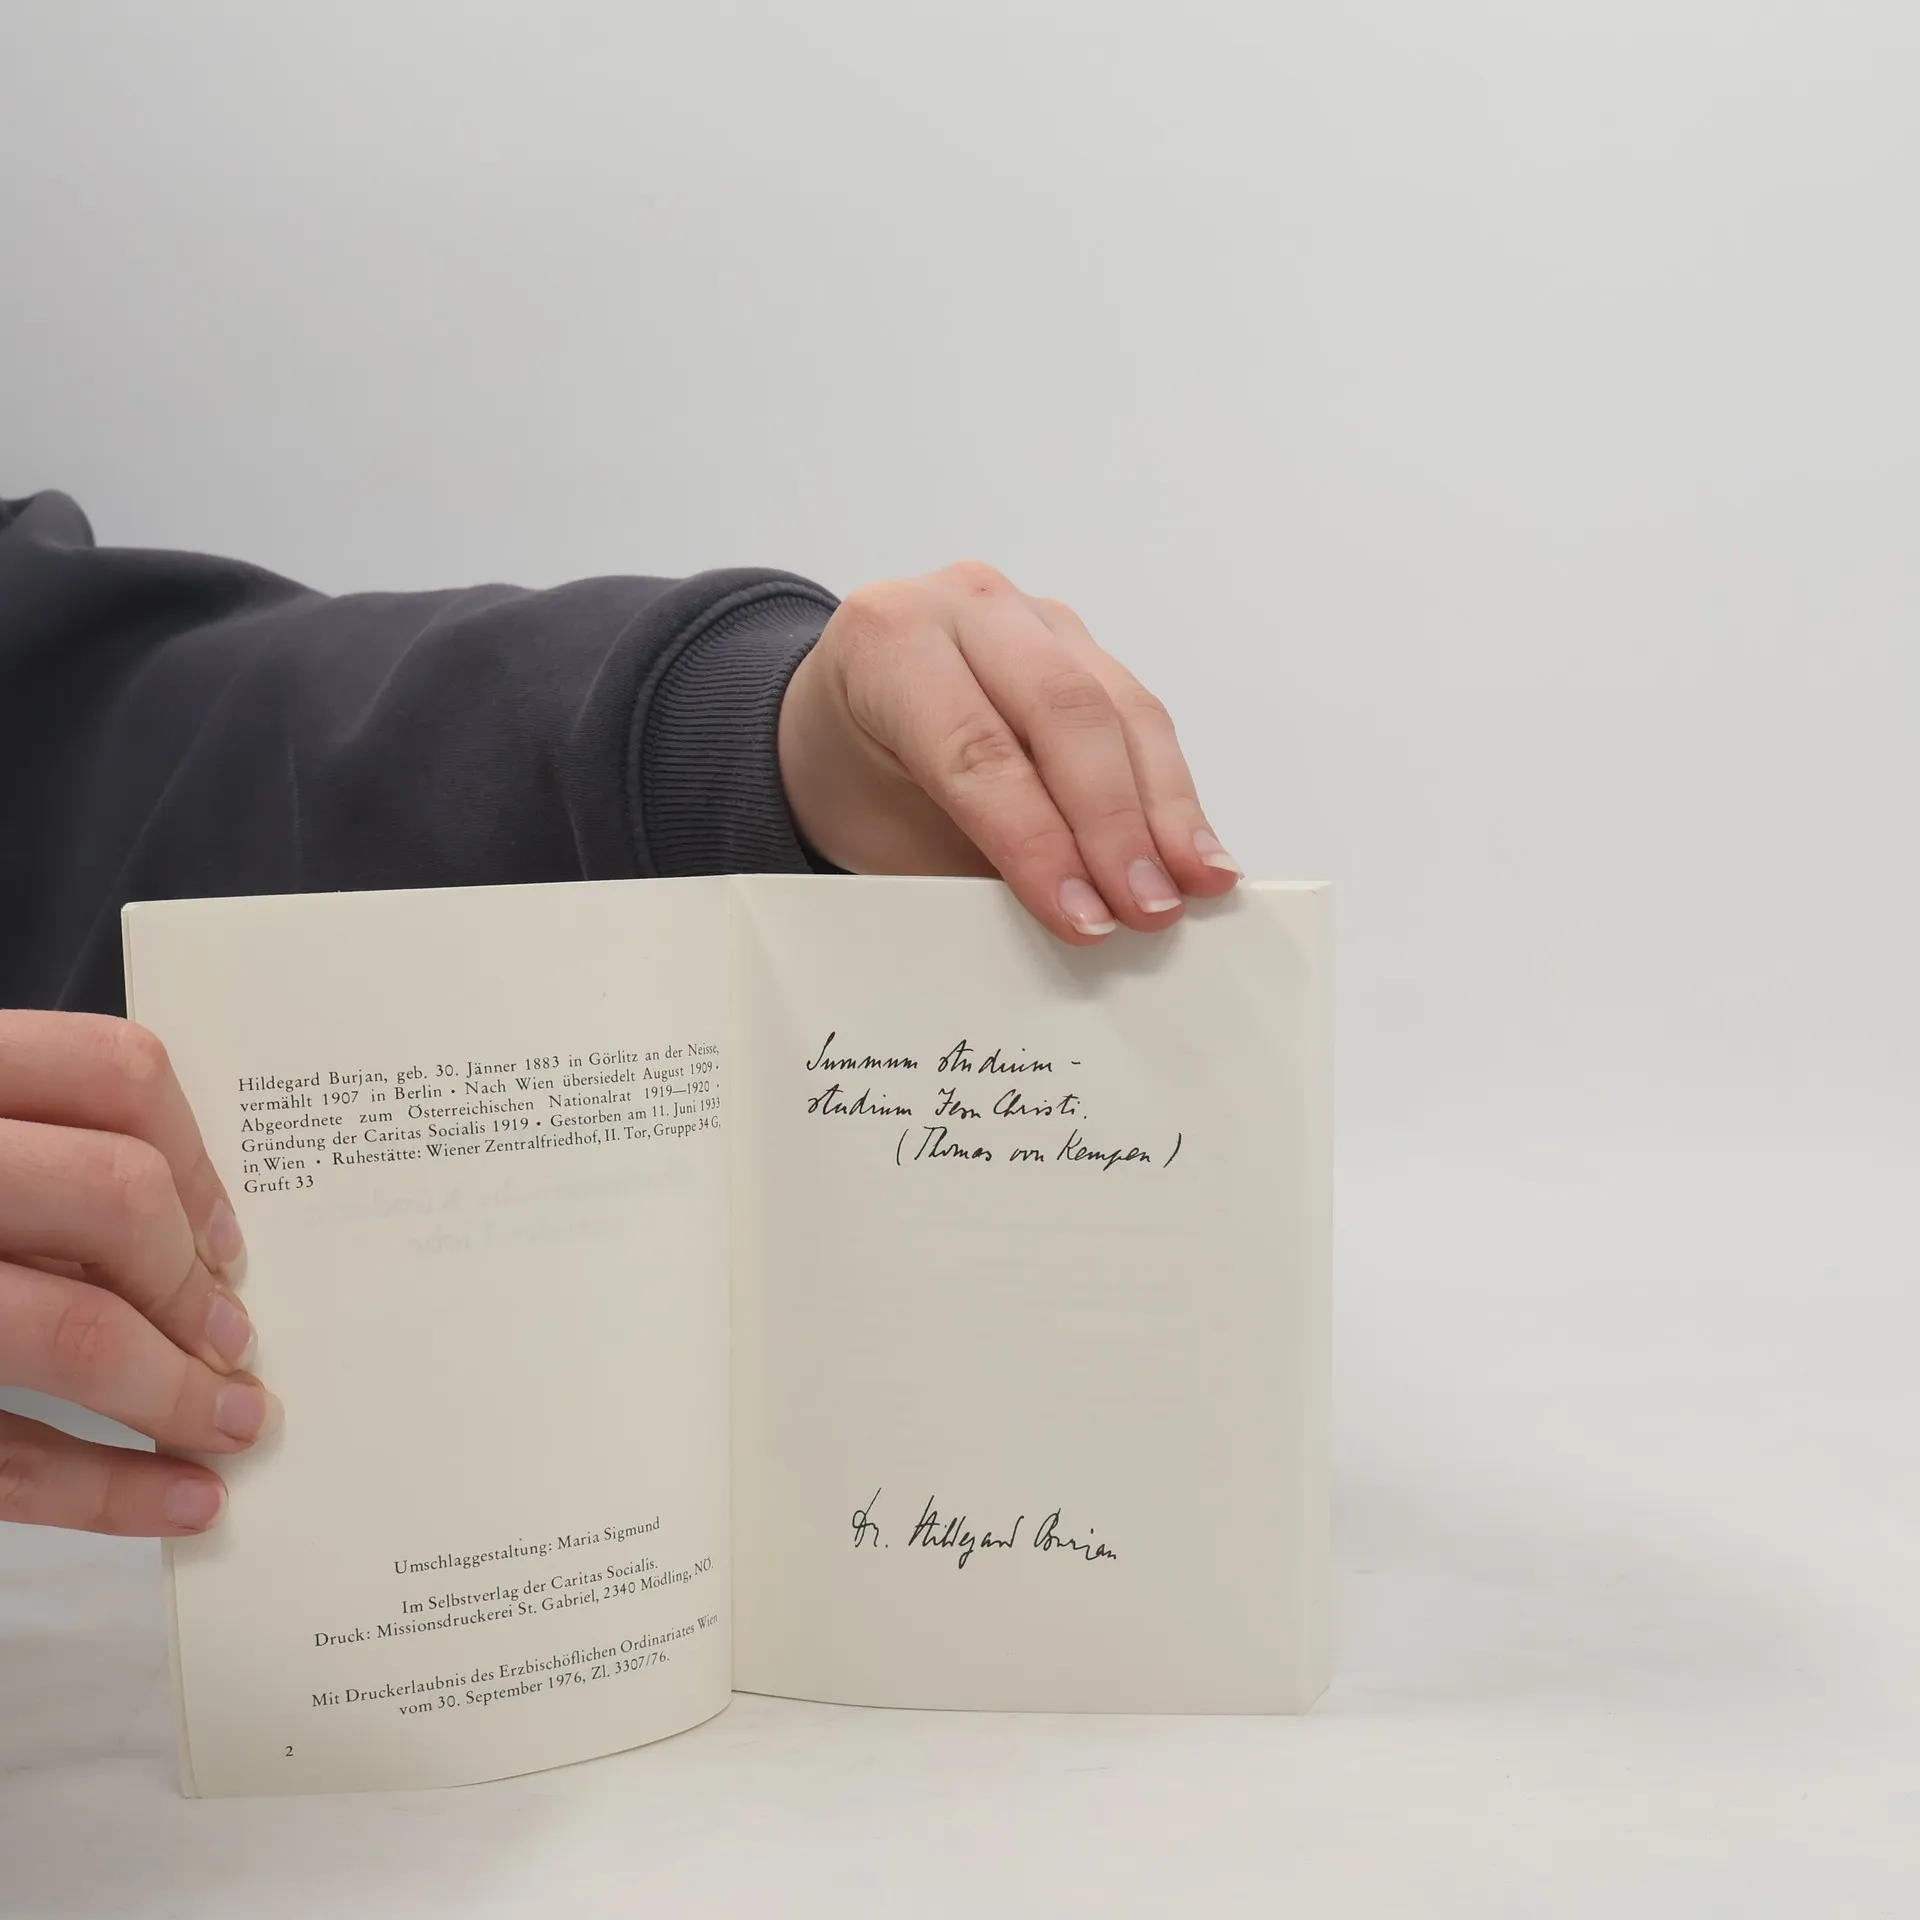 Hildegard Burjan, geb. 30. Jänner 1883 in Görlitz an der Neisse,
vermählt 1907 in Berlin • Nach Wien übersiedelt August 1909 •
Abgeordnete zum Österreichischen Nationalrat 1919—1920 •
Gründung der Caritas Socialis 1919 • Gestorben am 11. Juni 1933
in Wien • Ruhestätte: Wiener Zentralfriedhof, II. Tor, Gruppe 34 G,
Gruft 33
Umschlaggestaltung: Maria Sigmund
Im Selbstverlag der Caritas Socialis.
Druck: Missionsdruckerei St. Gabriel, 2340 Mödling, NÖ.
Mit Druckerlaubnis des Erzbischöflichen Ordinariates Wien
vom 30. September 1976, Zl. 3307/76.
2
Summum studium -
studium Jesu Christi.
(Thomas von Kempen)
Dr. Hildegard Burjan